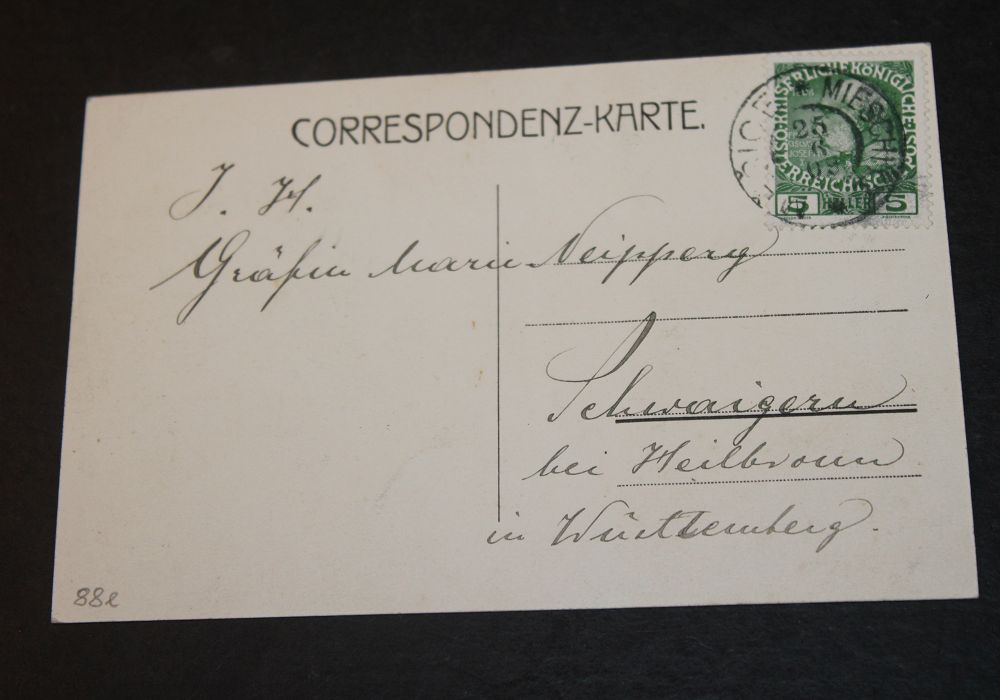 CORRESPONDENZ-KARTE.
MIESCHITZ
25
6
KAISERLICHE KÖNIGLICHE
ÖSTERREICHISCHE
5 HELLER 5
J. H.
Gräfin Marie Neipperg
Schwaigern
bei Heilbronn
in Württemberg.
88e